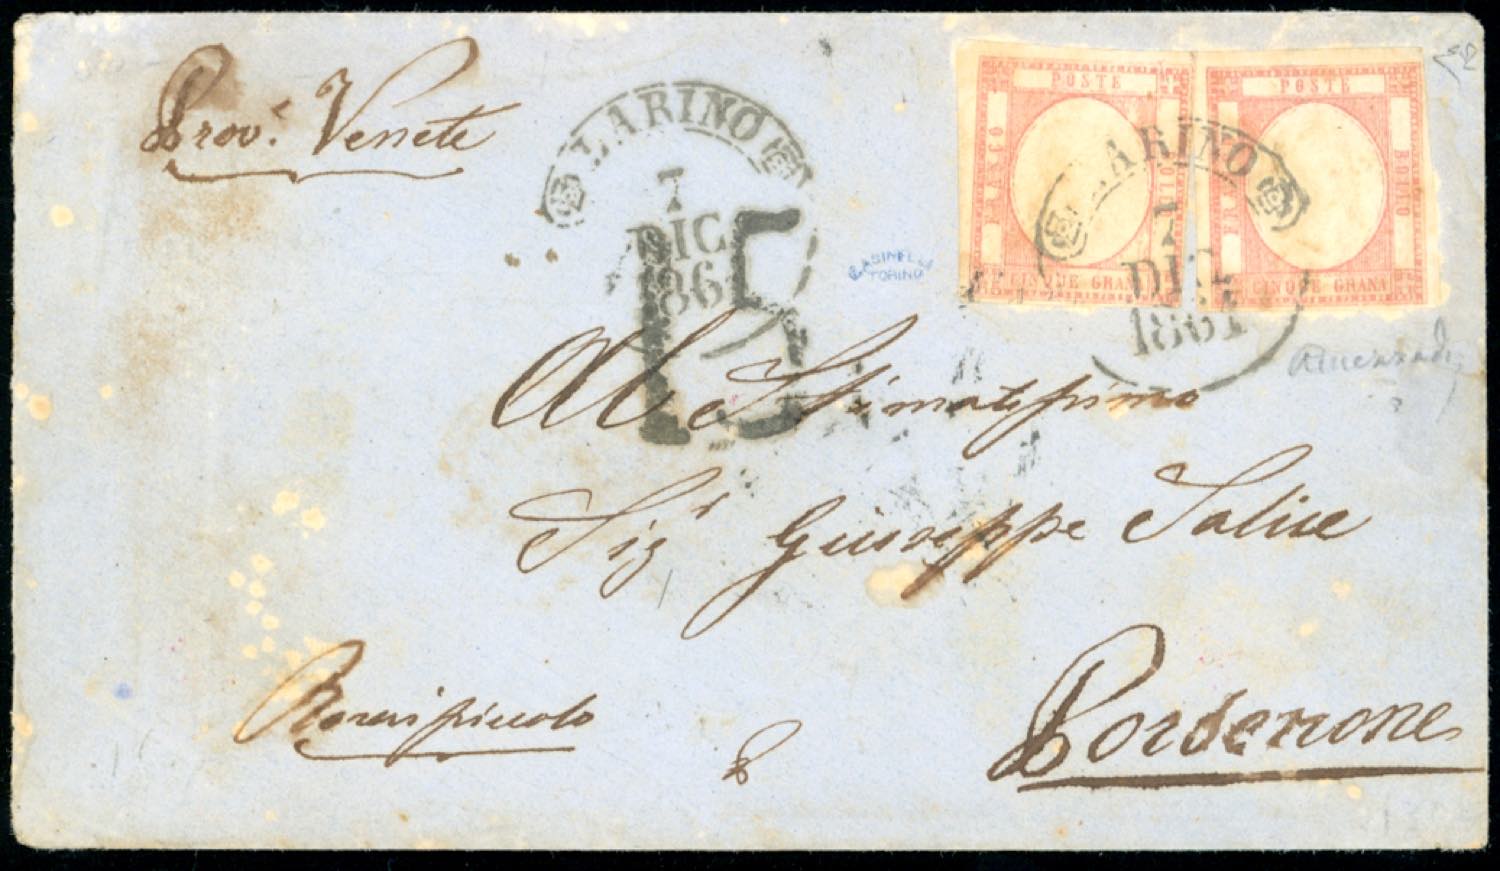 Prov.ᵉ Venete
LARINO
7
DIC.
1861
15
POSTE
FRANCO
BOLLO
CINQUE GRANA
POSTE
FRANCO
BOLLO
CINQUE GRANA
LARINO
7
DIC.
1861
ASINELLI
TORINO
Al Stimatissimo
Sigʳ Giuseppe Salice
Pordenone